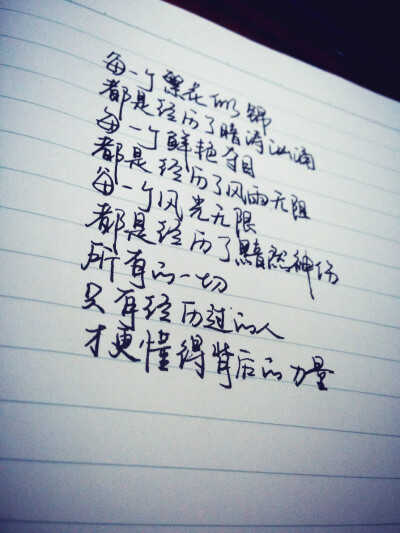 每一个繁花似锦
都是经历了暗涛汹涌
每一个鲜艳夺目
都是经历了风雨无阻
每一个风光无限
都是经历了黯然神伤
所有的一切
只有经历过的人
才更懂得背后的力量